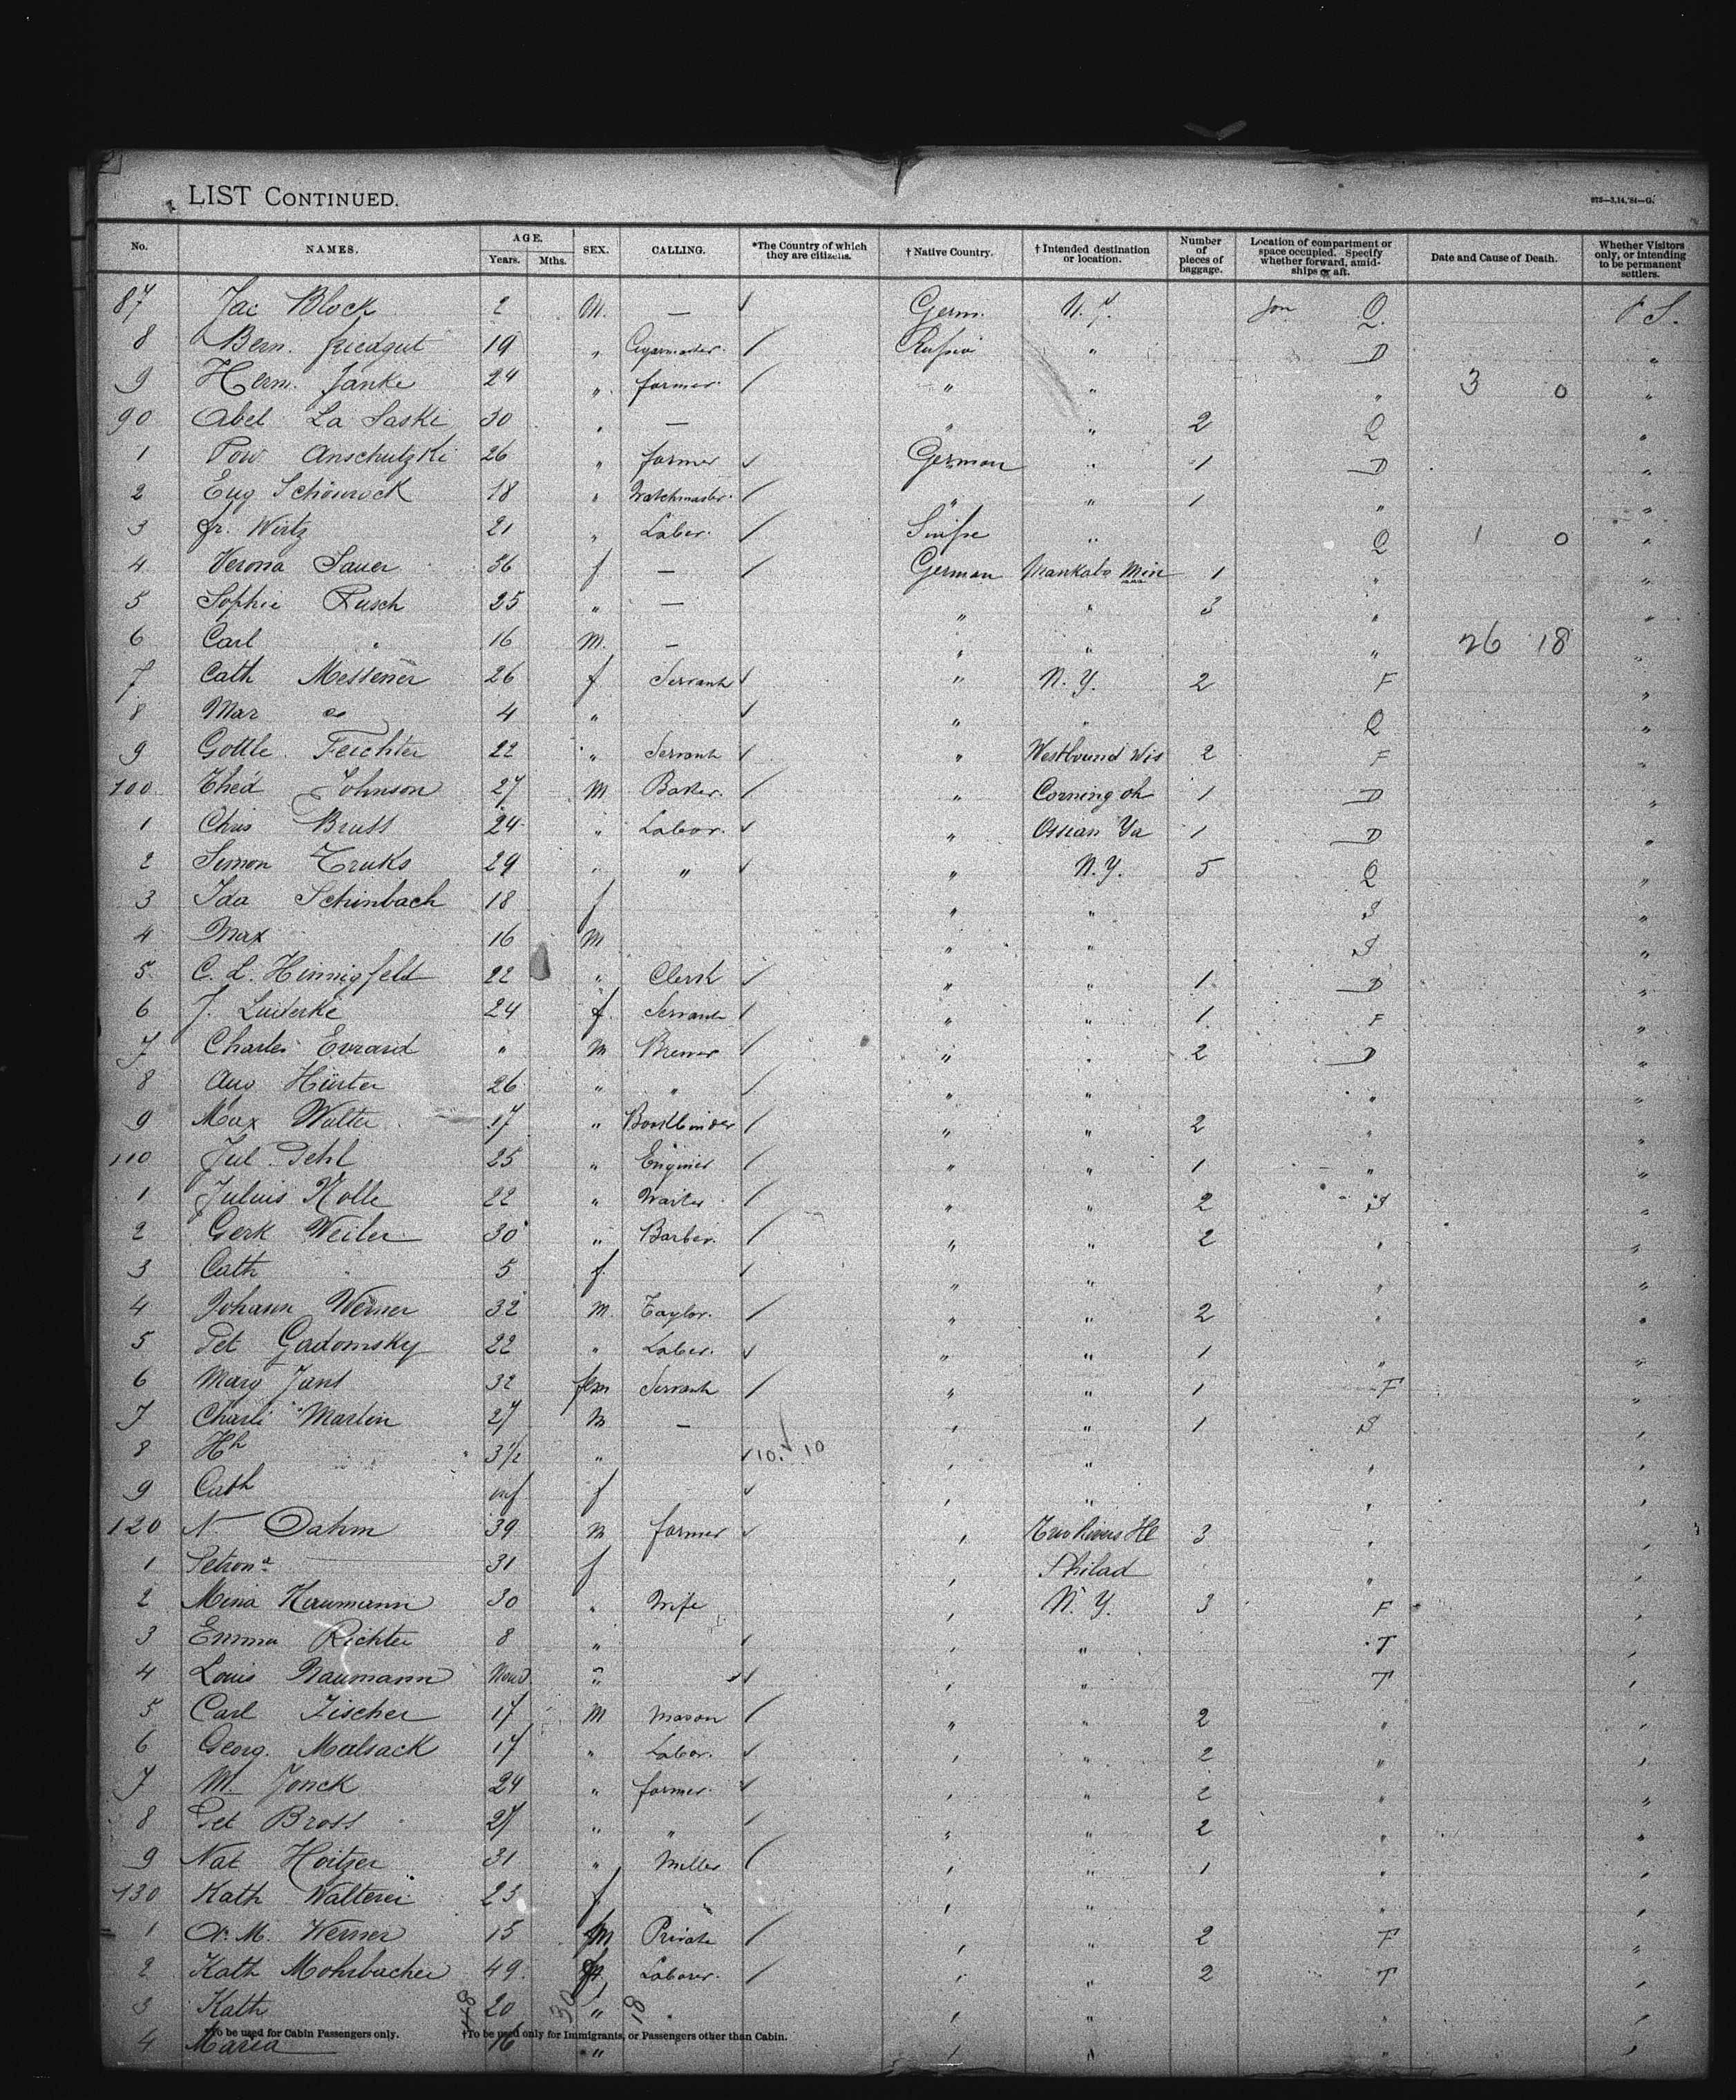 LIST CONTINUED.
975—3,14,'84—G.
No. NAMES. AGE. Years. Mths. SEX. CALLING. *The Country of which they are citizens. † Native Country. † Intended destination or location. Number of pieces of baggage. Location of compartment or space occupied. Specify whether forward, amid-ships or aft. Date and Cause of Death. Whether Visitors only, or intending to be permanent settlers.
87 Jac Block 2 M. — Germ. N.Y. Q. S.
8 Bern. Friedgut 19 " / " D "
9 Herm. Janke 24 " farmer / " " " 3 0 "
90 Abel La Saski 30 " — " " 2 Q "
1 Anschutzki 26 " farmer ✓ German " 1 D "
2 Eug Schönrock 18 " / " " 1 " "
3 Fr. Wirtz 21 " Labor. / " Q 1 0 "
4 Verona Sauer 36 f — / German Mankato Min 1 " "
5 Sophie Rusch 25 " — " " 3 " "
6 Carl " 16 M. — " " " 26 18 "
7 Cath Messener 26 f Servant ✓ " N.Y. 2 F "
8 Mar 4 " ✓ " " Q "
9 Gottle. Feichter 22 " Servant ✓ " Westbound Wis 2 F "
100 Johnson 27 M Baker. / " Corning oh 1 D "
1 Chris Bruss 24 " Labor. ✓ " Ossian 1 D "
2 Simon Truks 29 " " ✓ " N.Y. 5 Q "
3 Ida Schinbach 18 f " " S "
4 Max 16 M " " S "
5 C. L. Hinnigfeld 22 " Clerk ✓ " " 1 D "
6 J. Luderke 24 f. Servant / " " 1 F "
7 Charles Evrard " M Brewer / " " 2 D "
8 Aug Hürter 26 " " / " " " "
9 Max Walter 17 " Bookbinder / " " 2 " "
110 Jul. Pehl 25 " Enginer / " " 1 " "
1 Julius Nolle 22 " Waiter / " " 2 S "
2 Gerk Weiler 30 " Barber. / " " 2 " "
3 Cath " 5 f. ✓ " " " "
4 Johann Werner 32 M. Taylor. / " " 2 " "
5 Pet Gadomsky 22 " Labor. ✓ " " 1 " "
6 Marg Jans 32 fem Servant / " " 1 F "
7 Charli Martin 27 M — " " 1 S "
8 Hh " 3½ " ✓ 10 ✓ 10 " " " "
9 Cath inf f ✓ " " " "
120 N Dahm 39 M farmer ✓ " 3 " "
1 Petrona 31 f " Philad " "
2 Mina Naumann 30 " Wife " N.Y. 3 F "
3 Emma Richter 8 " ✓ " " T "
4 Louis Naumann " ✓ " " T "
5 Carl Fischer 17 M Mason / " " 2 " "
6 Georg. Malsack 17 " Labor. ✓ " " 2 " "
7 M Jonck 24 " farmer ✓ " " 2 " "
8 Pet Bross 27 " " / " " 2 " "
9 Nat Hoitzer 31 " Miller / " " 1 " "
130 Kath 23 f " " " "
1 M. Werner 15 Private / " " 2 F "
2 Kath Mohrbacher 49 Laborer. / " " 2 T "
3 Kath 20 " " " " "
118 30 18
*To be used for Cabin Passengers only. †To be used only for Immigrants, or Passengers other than Cabin.
4 Maria 16 " " " " "